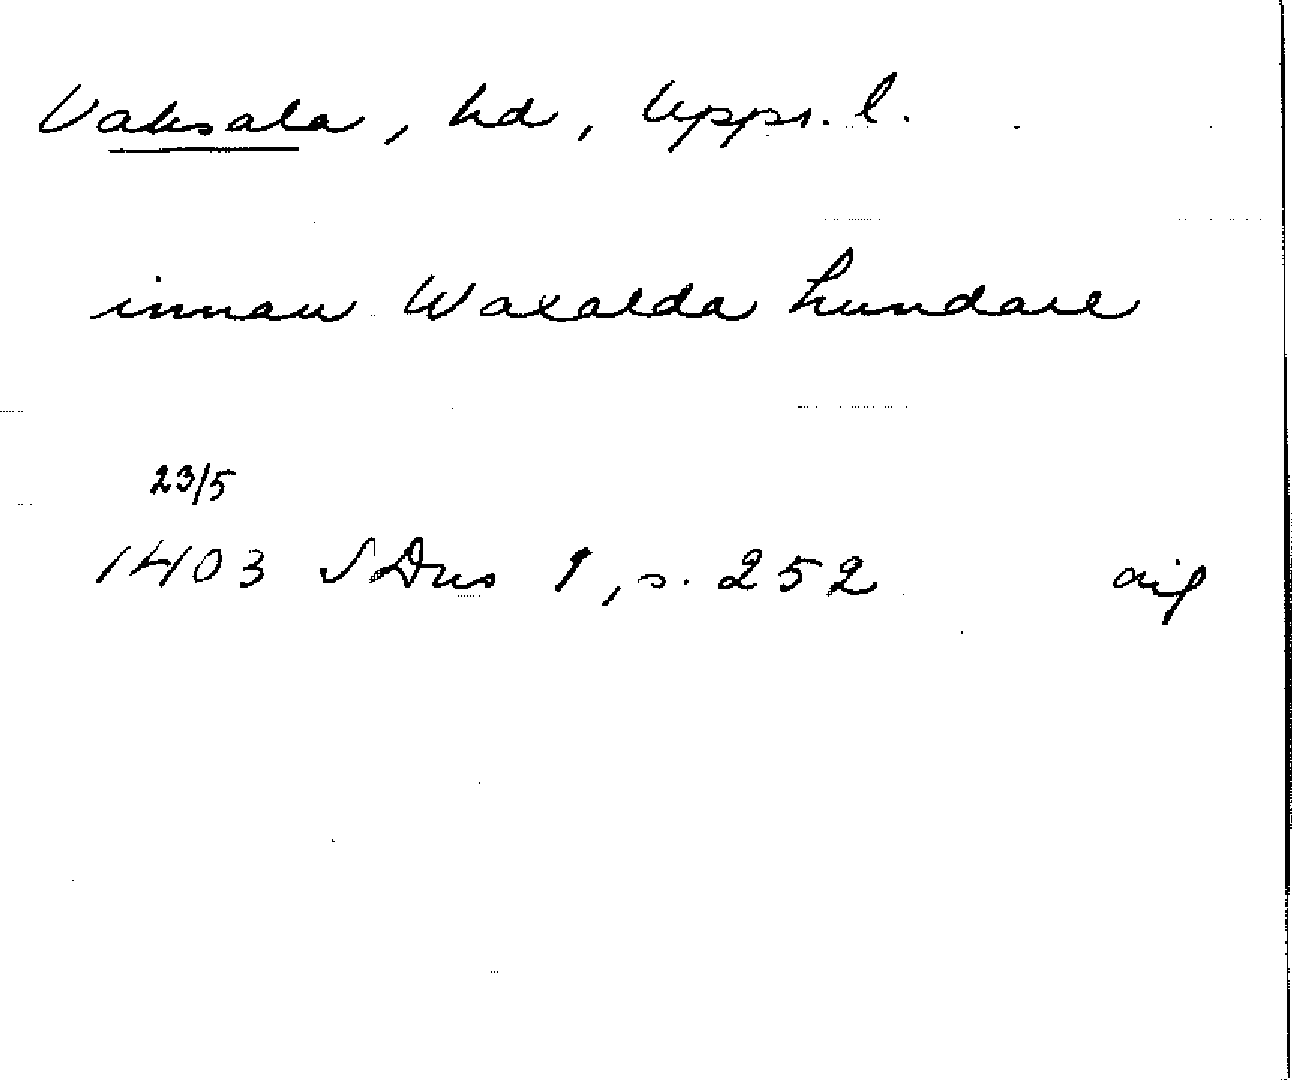 Vaksala, hd, Upps. l.
innan Waxalda hundare
23/5
1403 SDns 1, s. 252 avs